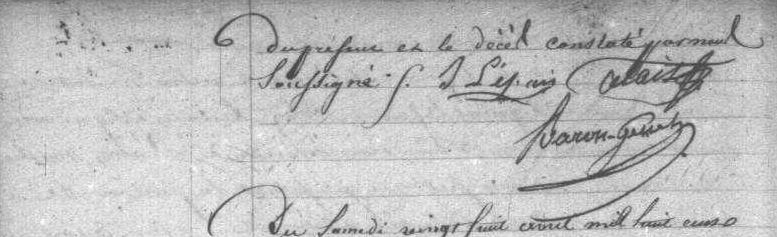 du présent et le décèd constaté par moi
Soussigné. J. Lépais
Baron-Genet
Du Samedi vingt huit avril mil huit cens